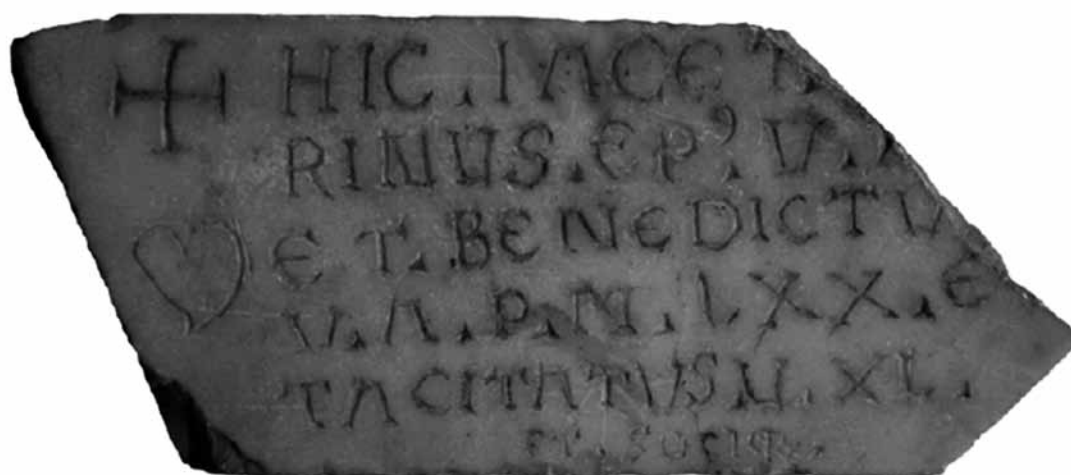 HIC . IACET
RINUS . EP' . V .
ET . BENEDICTU
V . A . P . M . LXX . E
TACITATUS . U . XL .